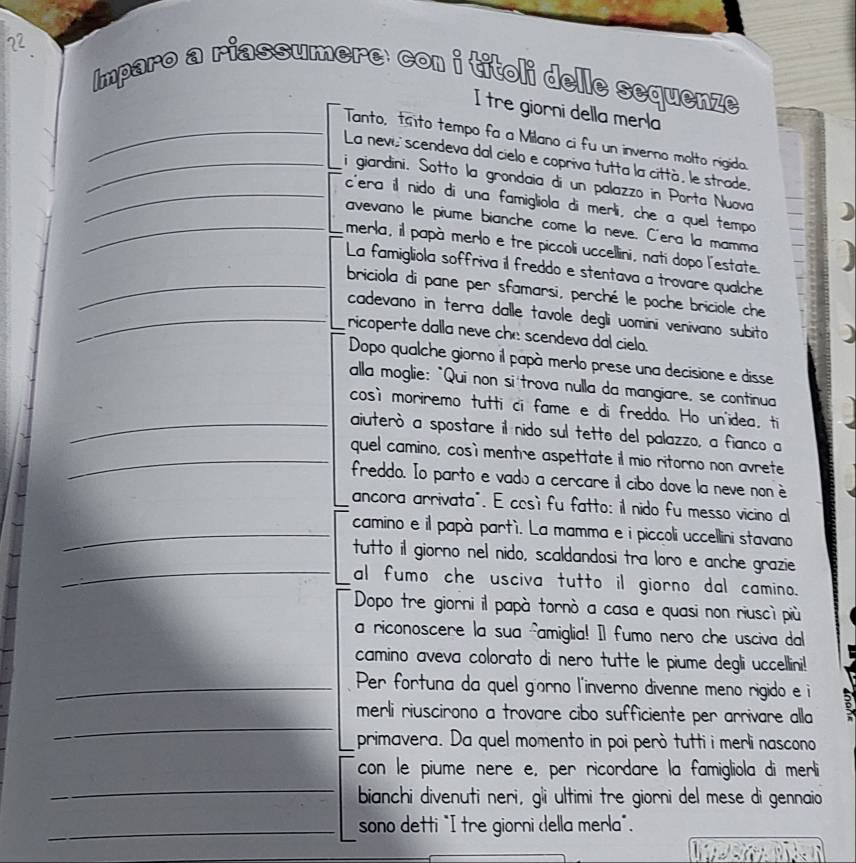 22
Imparo a riassumere: con i titoli delle sequenze
I tre giorni della merla
Tanto, tanto tempo fa a Milano ci fu un inverno molto rigido.
La neve scendeva dal cielo e copriva tutta la città, le strade,
i giardini. Sotto la grondaia di un palazzo in Porta Nuova
c'era il nido di una famigliola di merli, che a quel tempo
avevano le piume bianche come la neve. C'era la mamma
merla, il papà merlo e tre piccoli uccellini, nati dopo l'estate.
La famigliola soffriva il freddo e stentava a trovare qualche
briciola di pane per sfamarsi, perché le poche briciole che
cadevano in terra dalle tavole degli uomini venivano subito
ricoperte dalla neve che scendeva dal cielo.
Dopo qualche giorno il papà merlo prese una decisione e disse
alla moglie: "Qui non si trova nulla da mangiare, se continua
così moriremo tutti di fame e di freddo. Ho un'idea, ti
aiuterò a spostare il nido sul tetto del palazzo, a fianco a
quel camino, così mentre aspettate il mio ritorno non avrete
freddo. Io parto e vado a cercare il cibo dove la neve non è
ancora arrivata". E così fu fatto: il nido fu messo vicino al
camino e il papà partì. La mamma e i piccoli uccellini stavano
tutto il giorno nel nido, scaldandosi tra loro e anche grazie
al fumo che usciva tutto il giorno dal camino.
Dopo tre giorni il papà tornò a casa e quasi non riuscì più
a riconoscere la sua famiglia! Il fumo nero che usciva dal
camino aveva colorato di nero tutte le piume degli uccellini!
Per fortuna da quel giorno l'inverno divenne meno rigido e i
merli riuscirono a trovare cibo sufficiente per arrivare alla
primavera. Da quel momento in poi però tutti i merli nascono
con le piume nere e, per ricordare la famigliola di merli
bianchi divenuti neri, gli ultimi tre giorni del mese di gennaio
sono detti "I tre giorni della merla".